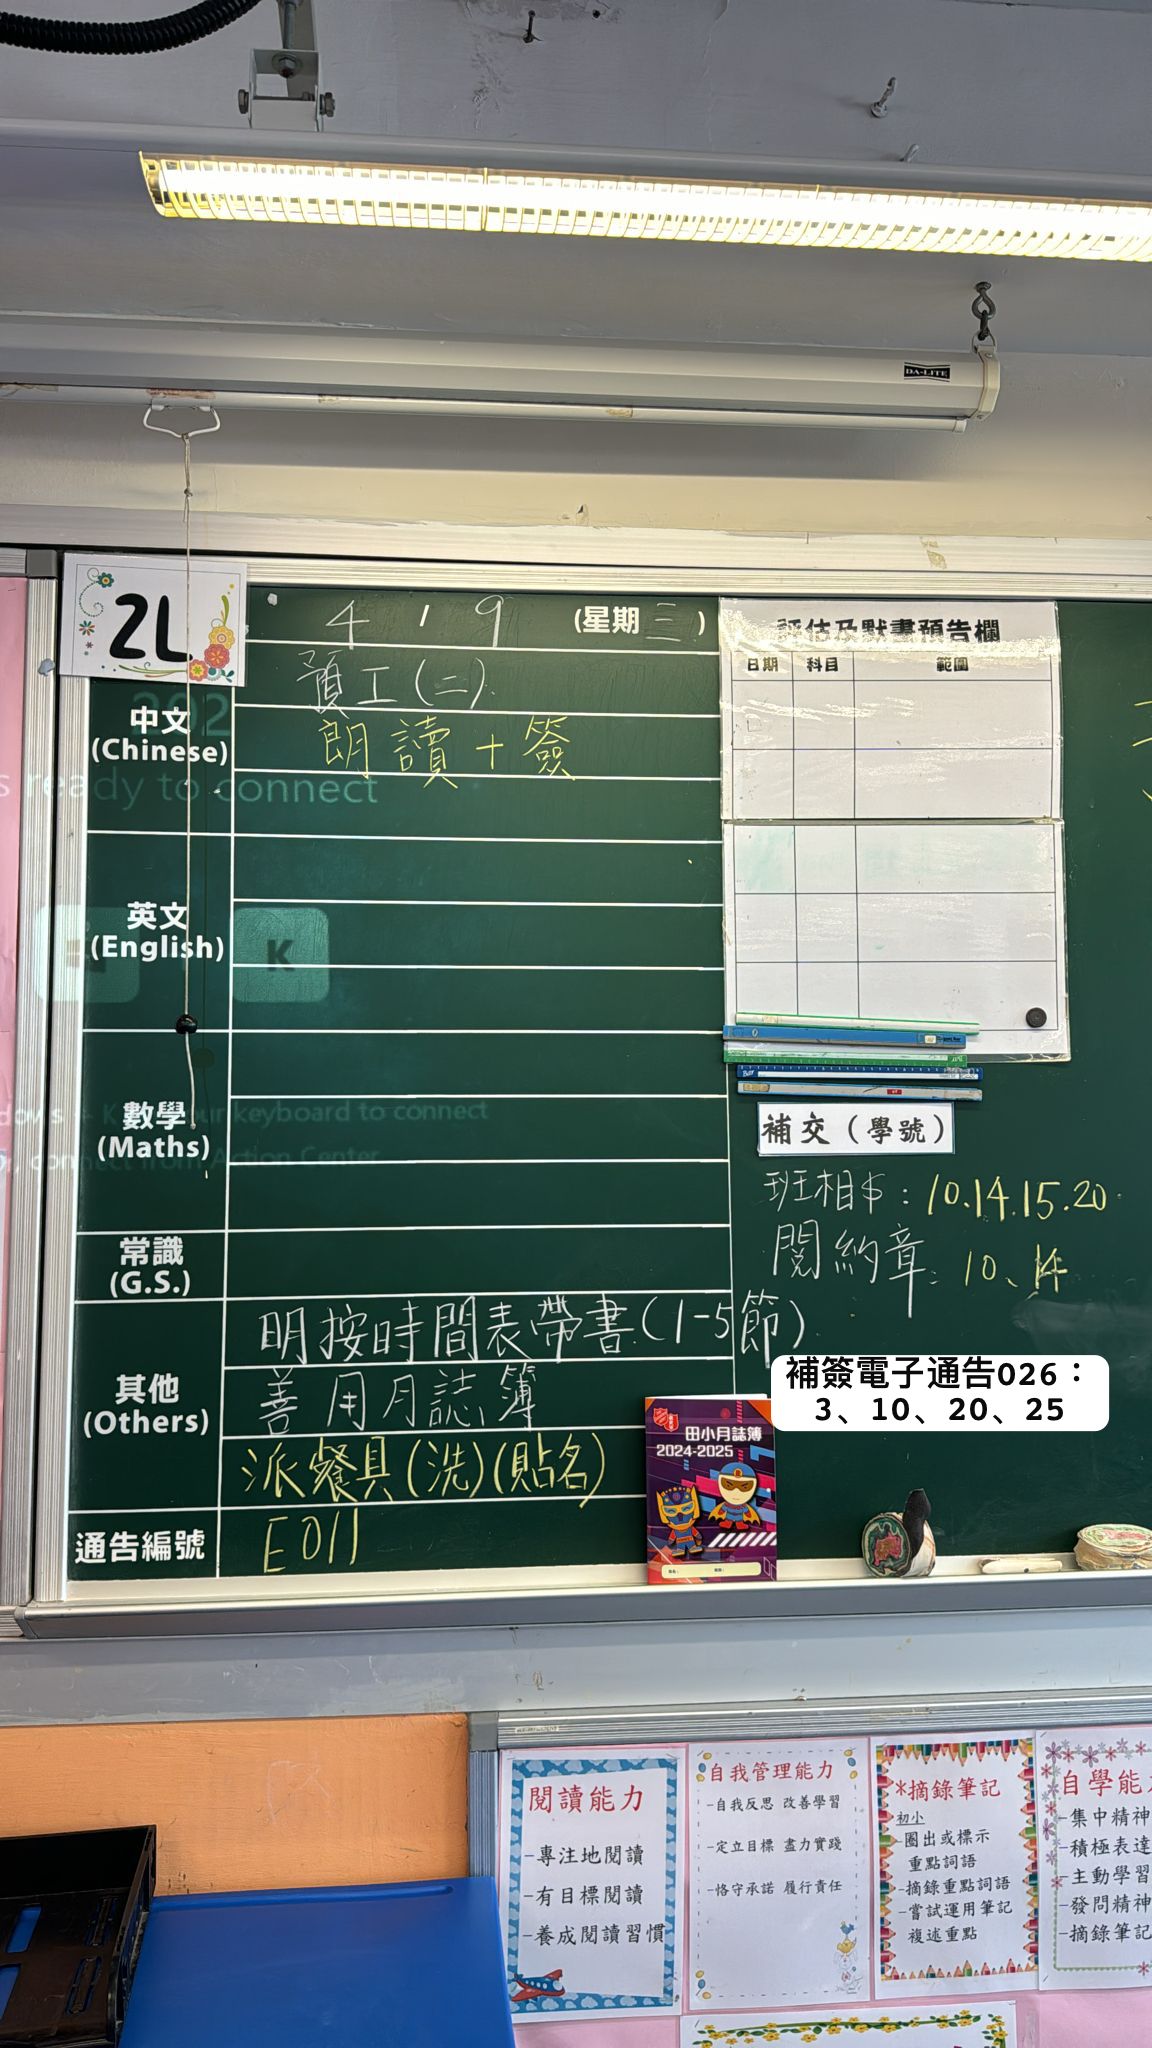 DA-LITE
2L
4 / 9 (星期三)
中文
(Chinese)
預工(二)
朗讀+簽
ready to connect
英文
(English)
K
數學
(Maths)
keyboard to connect
connect from Action Center
常識
(G.S.)
其他
(Others)
明按時間表帶書(1-5節)
善用月誌簿
派餐具(洗)(貼名)
通告編號
E011
評估及默書預告欄
日期 科目 範圍
補交(學號)
班相$:10.14.15.20
閱約章:10、14
補簽電子通告026:
3、10、20、25
田小月誌簿
2024-2025
閱讀能力
-專注地閱讀
-有目標閱讀
-養成閱讀習慣
自我管理能力
-自我反思 改善學習
-定立目標 盡力實踐
-恪守承諾 履行責任
*摘錄筆記
初小
-圈出或標示
重點詞語
-摘錄重點詞語
-嘗試運用筆記
複述重點
自學能
-集中精神
-積極表達
-主動學習
-發問精神
-摘錄筆記